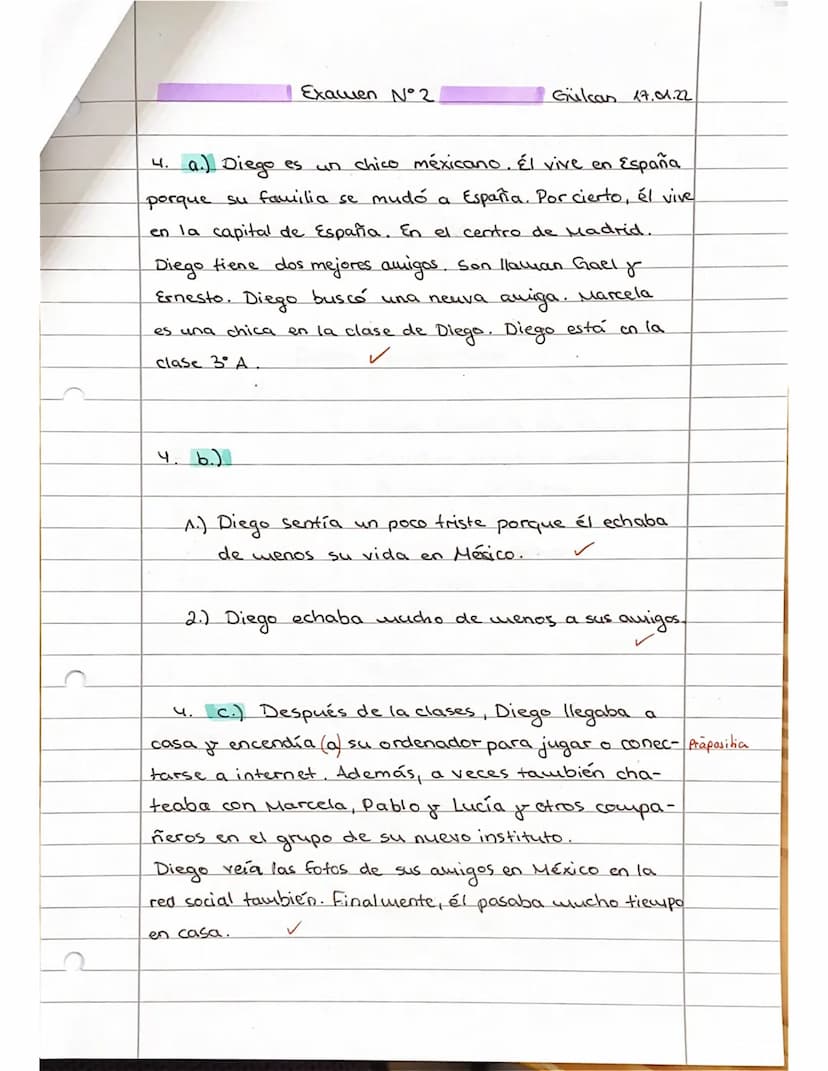 Examen N° 2 Gülcan 17.01.22
4. a.) Diego es un chico méxicano. Él vive en España
porque su familia se mudó a España. Por cierto, él vive
en la capital de España. En el centro de Madrid.
Diego tiene dos mejores amigos. Son llaman Gael y
Ernesto. Diego buscó una neuva amiga. Marcela
es una chica en la clase de Diego. Diego está en la
clase 3° A.
4. b.)
1.) Diego sentía un poco triste porque él echaba
de menos su vida en México.
2.) Diego echaba mucho de menos a sus amigos.
4. c.) Después de la clases, Diego llegaba a
casa y encendía (a) su ordenador para jugar o conec- Präposition
tarse a internet. Además, a veces también cha-
teaba con Marcela, Pablo y Lucía y otros compa-
ñeros en el grupo de su nuevo instituto.
Diego veía las fotos de sus amigos en México en la
red social también. Finalmente, él pasaba mucho tiempo
en casa.